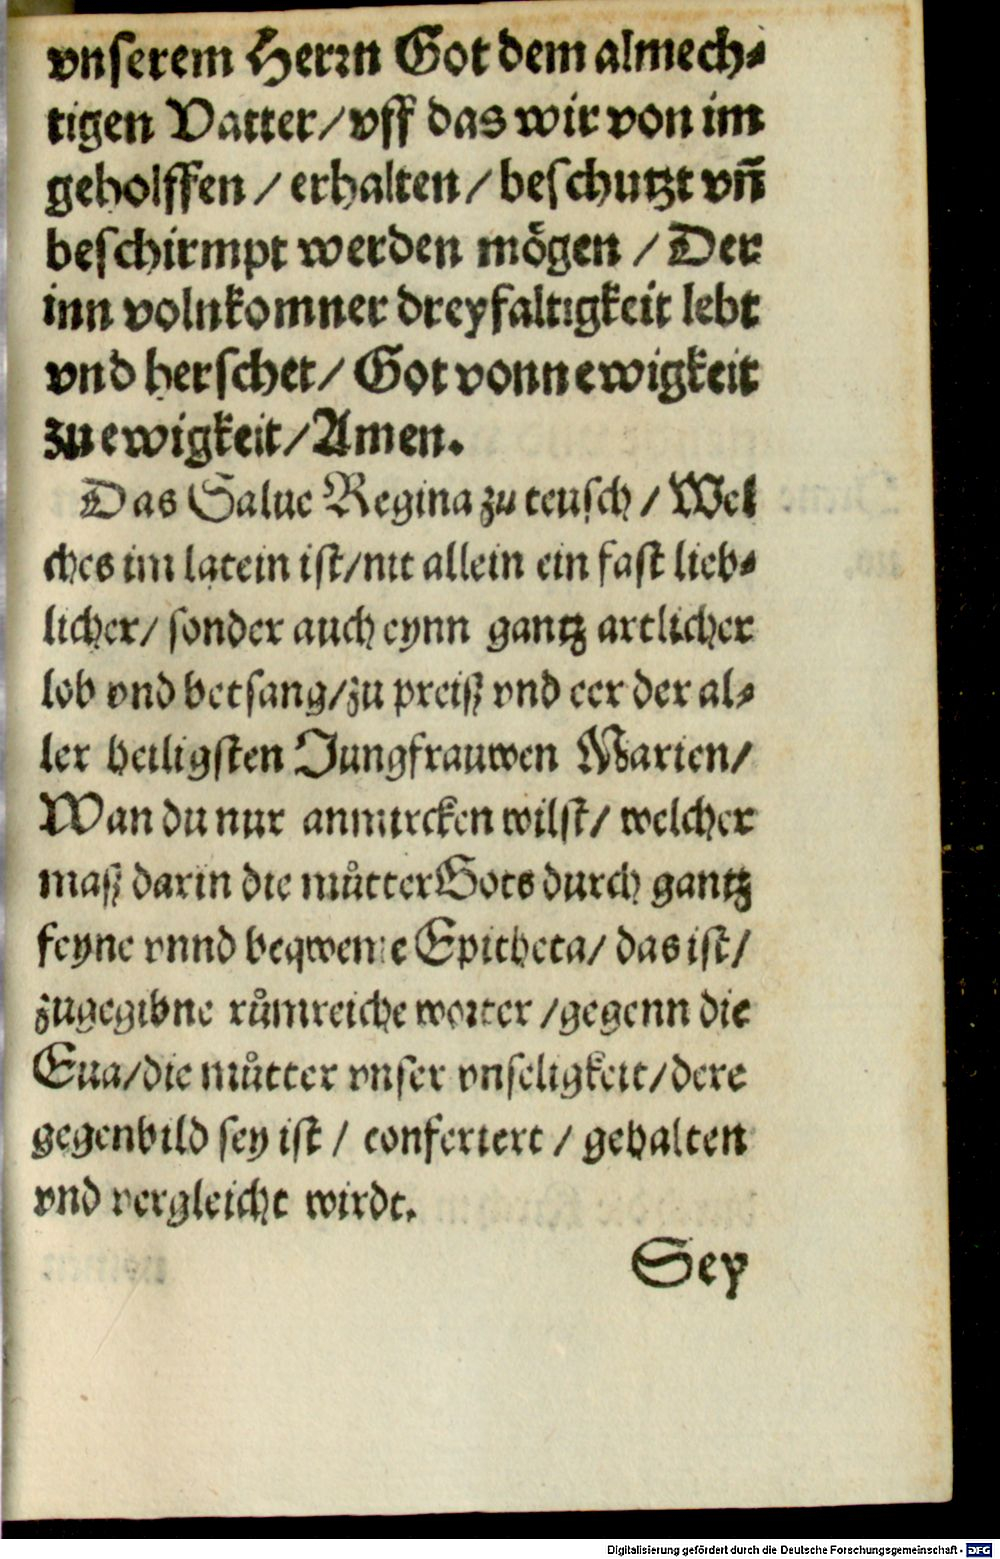 vnserem Herꝛn Got dem almech⸗
tigen Vatter/vff das wir von im
geholffen / erhalten / beschutzt vn̄
beschirmpt werden mögen / Der
inn volnkomner dreyfaltigkeit lebt
vnd herschet/ Got vonn ewigkeit
zu ewigkeit/Amen.
Das Salue Regina zu teusch / Wel
ches im latein ist/nit allein ein fast lieb⸗
licher/ sonder auch eynn gantz artlicher
lob vnd betsang/zu preiß vnd eer der al⸗
ler heiligsten Jungfrauwen Marien/
Wan du nur anmircken wilst/ welcher
maß darin die můtter Gots durch gantz
feyne vnnd beqweme Epitheta/ das ist/
zugegibne růmreiche woꝛter /gegenn die
Eua/die můtter vnser vnseligkeit/dere
gegenbild sey ist / confertert / gehalten
vnd vergleicht wirdt.
Sey
Digitalisierung gefördert durch die Deutsche Forschungsgemeinschaft - DFG